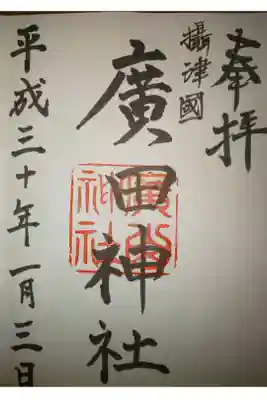 奉拝
攝津國
廣田神社
廣田神社
平成三十年一月三日